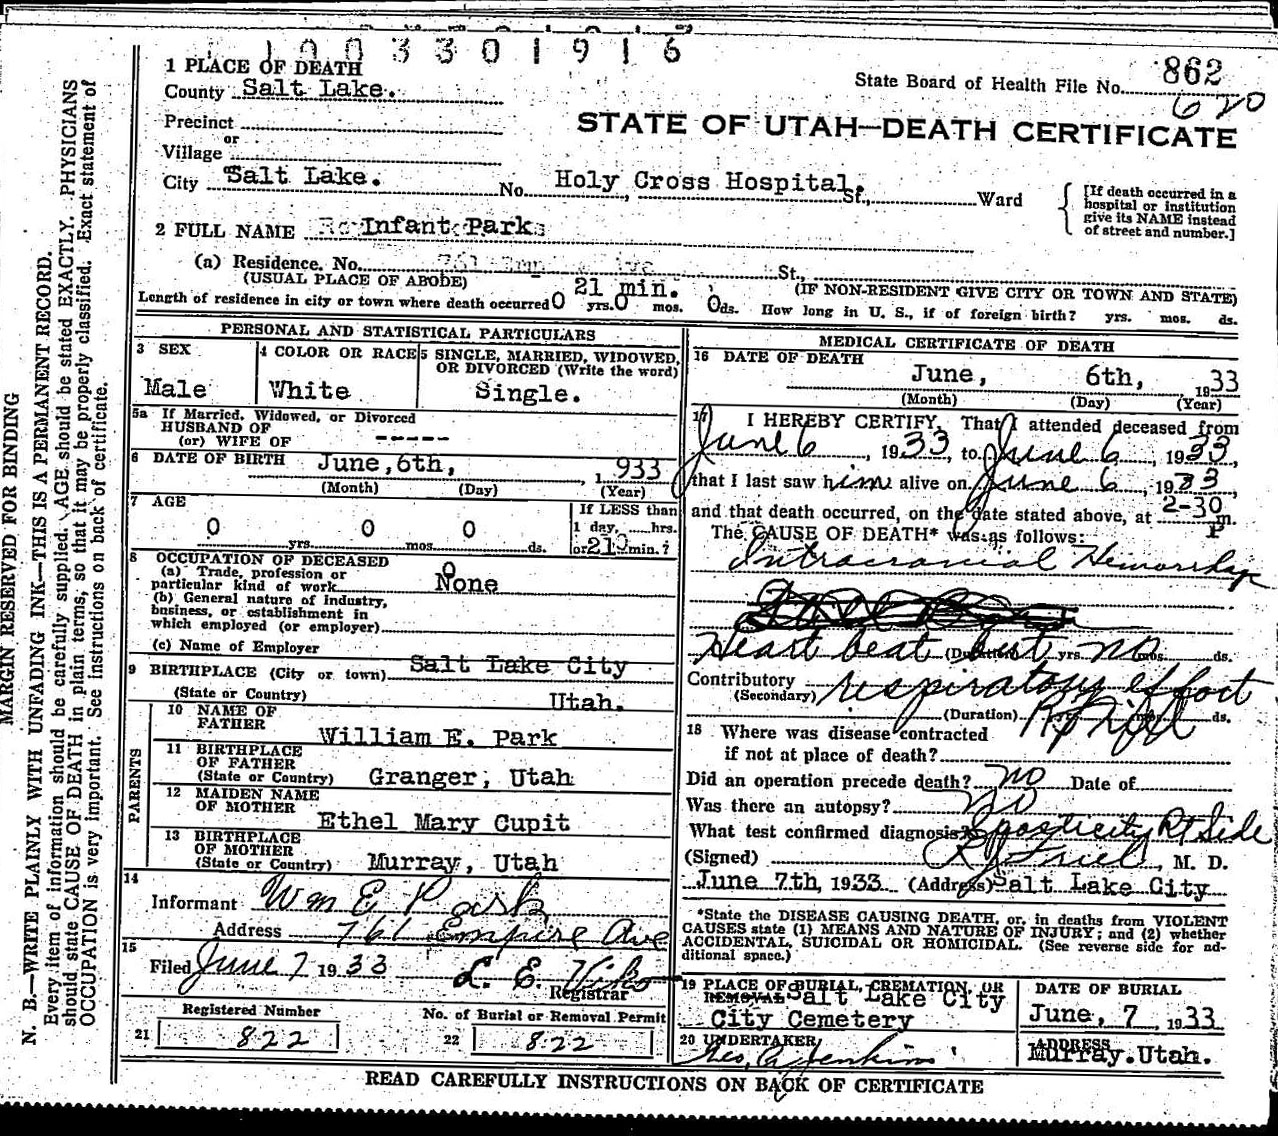 1003301916
1 PLACE OF DEATH
State Board of Health File No. 862
County Salt Lake.
620
STATE OF UTAH—DEATH CERTIFICATE
Precinct
or
Village
City Salt Lake. No. Holy Cross Hospital. St., Ward
[If death occurred in a
hospital or institution
give its NAME instead
of street and number.]
2 FULL NAME Infant Park
(a) Residence. No. St.,
(USUAL PLACE OF ABODE) (IF NON-RESIDENT GIVE CITY OR TOWN AND STATE)
21 min.
Length of residence in city or town where death occurred 0 yrs. 0 mos. 0 ds. How long in U. S., if of foreign birth? yrs. mos. ds.
PERSONAL AND STATISTICAL PARTICULARS
3 SEX
Male
4 COLOR OR RACE
White
5 SINGLE, MARRIED, WIDOWED,
OR DIVORCED (Write the word)
Single.
5a If Married, Widowed, or Divorced
HUSBAND OF
(or) WIFE OF -----
6 DATE OF BIRTH June, 6th, 1933
(Month) (Day) (Year)
7 AGE
0 yrs. 0 mos. 0 ds.
If LESS than
1 day, hrs.
or 21 min.?
8 OCCUPATION OF DECEASED
(a) Trade, profession or
particular kind of work None
(b) General nature of industry,
business, or establishment in
which employed (or employer)
(c) Name of Employer
9 BIRTHPLACE (City or town) Salt Lake City
(State or Country) Utah.
PARENTS
10 NAME OF
FATHER William E. Park
11 BIRTHPLACE
OF FATHER
(State or Country) Granger, Utah
12 MAIDEN NAME
OF MOTHER Ethel Mary Cupit
13 BIRTHPLACE
OF MOTHER
(State or Country) Murray, Utah
14
Informant Wm E Park
Address 761 Empire Ave
15
Filed June 7 1933 L. E.
Registrar
Registered Number
21 822
No. of Burial or Removal Permit
22 822
MEDICAL CERTIFICATE OF DEATH
16 DATE OF DEATH
June, 6th, 1933
(Month) (Day) (Year)
17 I HEREBY CERTIFY, That I attended deceased from
June 6, 1933, to June 6, 1933,
that I last saw him alive on June 6, 1933,
and that death occurred, on the date stated above, at 2-30 P m.
The CAUSE OF DEATH* was as follows:
Intracranial Hemorrhage
Heart beat but no
(Duration) yrs. mos. ds.
Contributory respiratory effort
(Secondary)
(Duration) yrs. mos. ds.
18 Where was disease contracted
if not at place of death?
Did an operation precede death? no Date of
Was there an autopsy? no
What test confirmed diagnosis? Spasticity Rt Side
(Signed) , M. D.
June 7th, 1933 (Address) Salt Lake City
*State the DISEASE CAUSING DEATH, or, in deaths from VIOLENT
CAUSES state (1) MEANS AND NATURE OF INJURY; and (2) whether
ACCIDENTAL, SUICIDAL OR HOMICIDAL. (See reverse side for ad-
ditional space.)
19 PLACE OF BURIAL, CREMATION, OR
REMOVAL Salt Lake City
City Cemetery
DATE OF BURIAL
June, 7, 1933
20 UNDERTAKER
Geo. Jenkins
ADDRESS
Murray. Utah.
READ CAREFULLY INSTRUCTIONS ON BACK OF CERTIFICATE
MARGIN RESERVED FOR BINDING
N. B.—WRITE PLAINLY WITH UNFADING INK—THIS IS A PERMANENT RECORD.
Every item of information should be carefully supplied. AGE should be stated EXACTLY. PHYSICIANS
should state CAUSE OF DEATH in plain terms, so that it may be properly classified. Exact statement of
OCCUPATION is very important. See instructions on back of certificate.